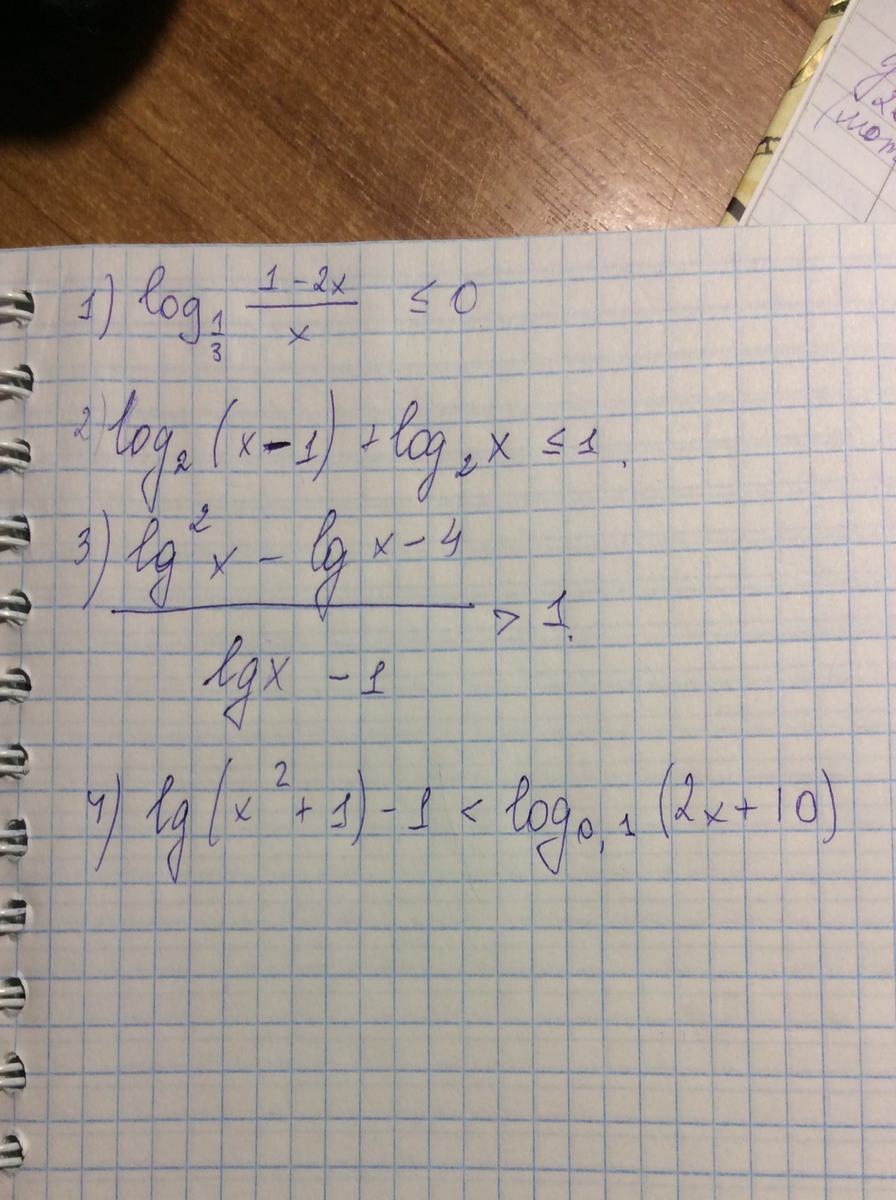 1) log_{1/3} (1-2x)/x ≤ 0
2) log_2 (x-1) + log_2 x ≤ 1.
3) (lg^2 x - lg x - 4)/(lg x - 1) > 1.
4) lg(x^2+1) - 1 < log_{0,1} (2x+10)